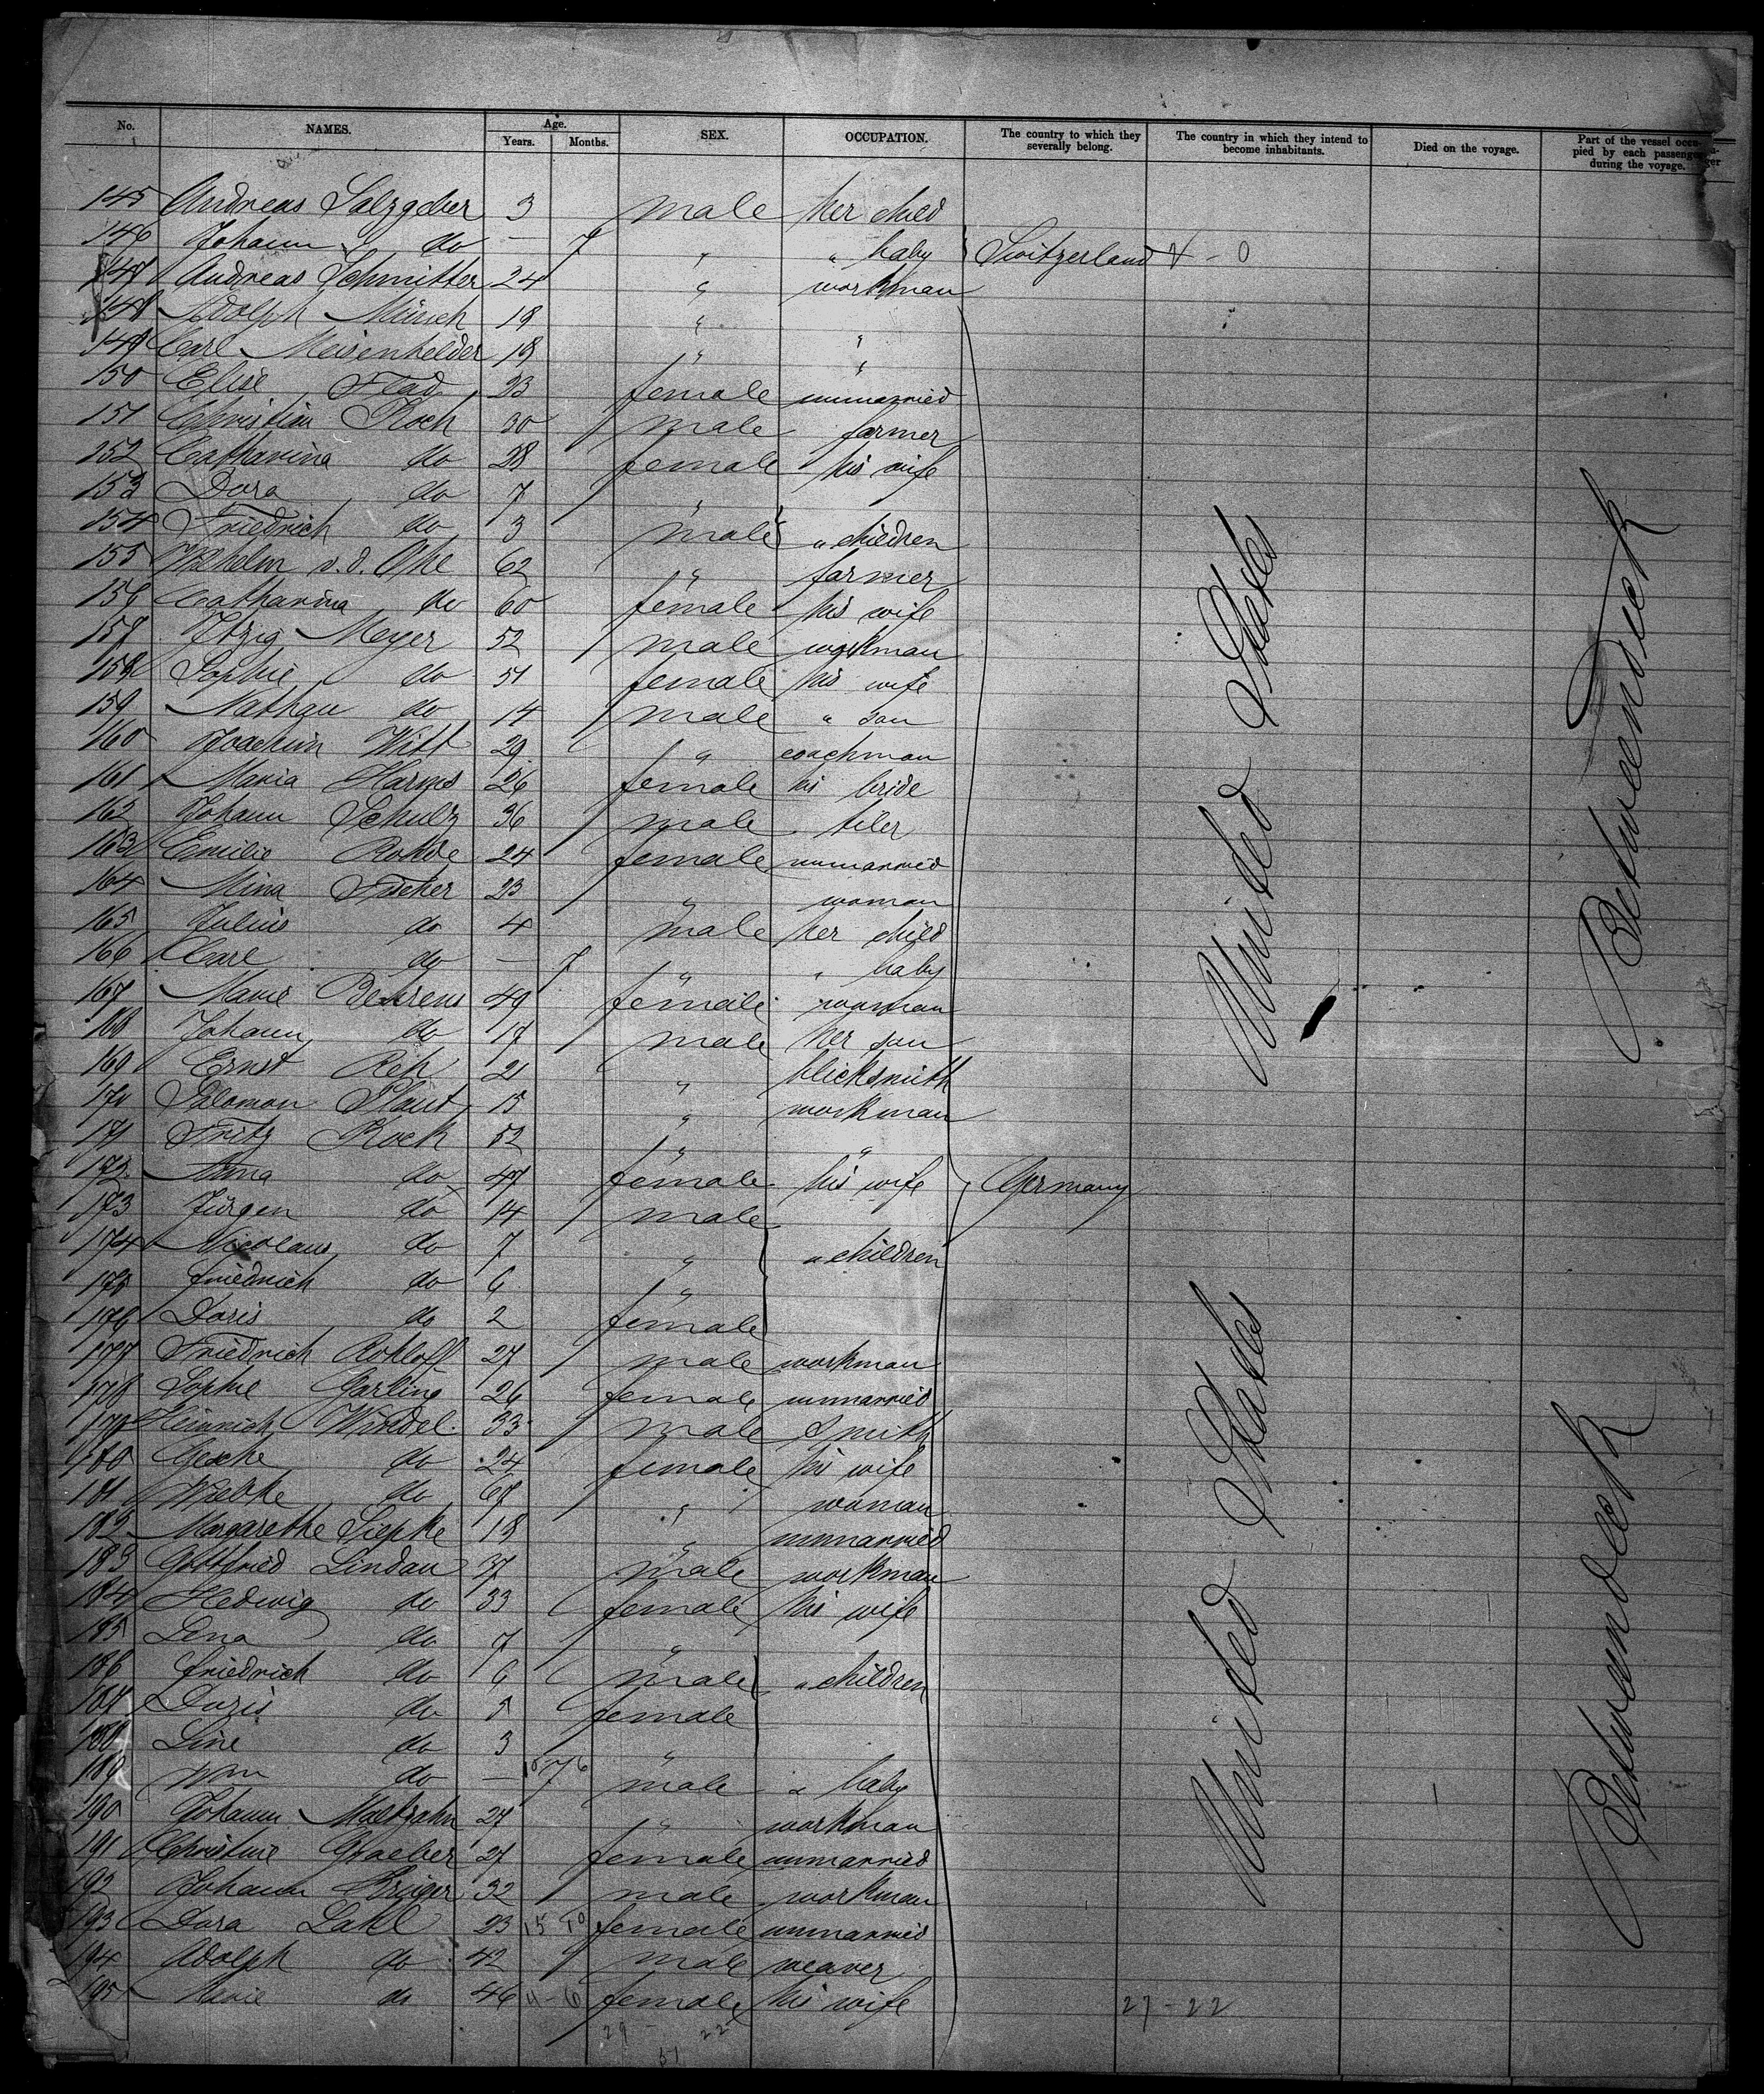 No. NAMES. Age. Years. Months. SEX. OCCUPATION. The country to which they severally belong. The country in which they intend to become inhabitants. Died on the voyage. Part of the vessel occupied by each passenger during the voyage.
145 Andreas Salzgeber 3 male her child
146 Johann do — 7 " " baby Switzerland
147 Andreas Schmitter 24 " workman
148 Adolph Münch 18 " "
149 Carl Meisenhelder 18 " "
150 Elise Flad 23 female unmarried
151 Christian Koch 30 male farmer
152 Catharina do 28 female his wife
153 Dora do 7 "
154 Friedrich do 3 male " children
155 Wilhelm v. d. Ohe 62 " farmer
156 Catharina do 60 female his wife
157 Itzig Meyer 52 male workman
158 Sophie do 51 female his wife
159 Nathan do 14 male " son
160 Joachim Witt 29 " coachman
161 Maria Harms 26 female his bride
162 Johann Schulz 36 male tiler
163 Emilie Rohde 24 female unmarried
164 Mina Fischer 23 " woman
165 Julius do 4 male her child
166 Carl do — 7 " " baby
167 Marie Behrens 49 female woman
168 Johann do 17 male her son
169 Ernst Reh 21 " blicksmith
170 Salomon Plaut 15 " workman
171 Fritz Kock 52 " "
172 Anna do 47 female his wife Germany
173 Jürgen do 14 male
174 Nicolaus do 7 " " children
175 Friedrich do 6 "
176 Doris do 2 female
177 Friedrich Rohloff 27 male workman
178 Sophie Garling 26 female unmarried
179 Heinrich Windel 33 male Smith
180 Gesche do 24 female his wife
181 Wiebke do 67 " woman
182 Margarethe Siepke 18 " unmarried
183 Gottfried Lindau 37 male workman
184 Hedwig do 33 female his wife
185 Lena do 7 "
186 Friedrich do 6 male " children
187 Doris do 5 female
188 Line do 3 "
189 Wm do — 7 male " baby
190 Johann Maltzahn 27 " workman
191 Christine Graeber 27 female unmarried
192 Johann Krüger 32 male workman
193 Dora Lahl 23 15 10 female unmarried
194 Adolph do 42 male weaver
195 Marie do 46 11-6 female his wife 27-22
29 - 22
51
United States
United States
Betweendeck
Betweendeck